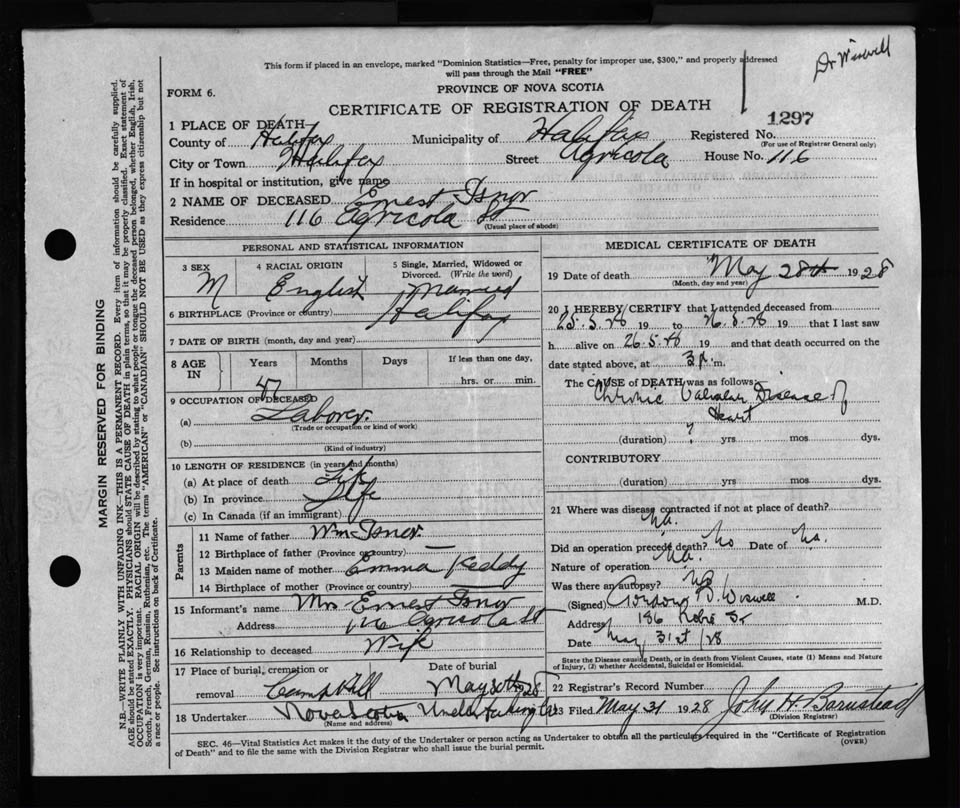 Dr Wiswell
This form if placed in an envelope, marked "Dominion Statistics—Free, penalty for improper use, $300," and properly addressed
will pass through the Mail "FREE"
FORM 6.
PROVINCE OF NOVA SCOTIA
CERTIFICATE OF REGISTRATION OF DEATH
1297
1 PLACE OF DEATH
County of Halifax Municipality of Halifax Registered No.
(For use of Registrar General only)
City or Town Halifax Street Agricola House No. 116
If in hospital or institution, give name
2 NAME OF DECEASED Ernest Isnor
Residence 116 Agricola St
(Usual place of abode)
PERSONAL AND STATISTICAL INFORMATION
3 SEX 4 RACIAL ORIGIN 5 Single, Married, Widowed or Divorced. (Write the word)
M English Married
6 BIRTHPLACE (Province or country) Halifax
7 DATE OF BIRTH (month, day and year)
8 AGE IN Years Months Days If less than one day,
47 hrs. or min.
9 OCCUPATION OF DECEASED
(a) Laborer.
(Trade or occupation or kind of work)
(b)
(Kind of industry)
10 LENGTH OF RESIDENCE (in years and months)
(a) At place of death Life
(b) In province Life
(c) In Canada (if an immigrant)
Parents
11 Name of father Wm Isnor.
12 Birthplace of father (Province or country) —
13 Maiden name of mother Emma Keddy
14 Birthplace of mother (Province or country) —
15 Informant's name Mrs Ernest Isnor
Address 116 Agricola St
16 Relationship to deceased Wife
17 Place of burial, cremation or removal Camp Hill Date of burial May 30th 1928
18 Undertaker Nova Scotia Undertaking Co
(Name and address)
MEDICAL CERTIFICATE OF DEATH
19 Date of death May 28th 1928
(Month, day and year)
20 I HEREBY CERTIFY that I attended deceased from
25.5.28 19 to 26.5.28 19 that I last saw
h alive on 26.5.28 19 and that death occurred on the
date stated above, at 3 p. m.
The CAUSE of DEATH was as follows:
Chronic Valvular Disease of
Heart
(duration) ? yrs mos dys.
CONTRIBUTORY
(duration) yrs mos dys.
21 Where was disease contracted if not at place of death?
Na.
Did an operation precede death? No Date of Na.
Nature of operation Na.
Was there an autopsy? No
(Signed) Gordon B. Wiswell M.D.
Address 186 Robie St
Date May 31st/28
State the Disease causing Death, or in death from Violent Causes, state (1) Means and Nature
of Injury, (2) whether Accidental, Suicidal or Homicidal.
22 Registrar's Record Number
23 Filed May 31 1928 John H. Barnstead
(Division Registrar)
SEC. 46—Vital Statistics Act makes it the duty of the Undertaker or person acting as Undertaker to obtain all the particulars required in the "Certificate of Registration
of Death" and to file the same with the Division Registrar who shall issue the burial permit. (OVER)
MARGIN RESERVED FOR BINDING
N.B.—WRITE PLAINLY WITH UNFADING INK—THIS IS A PERMANENT RECORD. Every item of information should be carefully supplied.
AGE should be stated EXACTLY. PHYSICIANS should STATE CAUSE OF DEATH in plain terms, so that it may be properly classified. Exact statement of
OCCUPATION is very important. RACIAL ORIGIN will be described by stating to what people or tongue the deceased person belonged, whether English, Irish,
Scotch, French, German, Russian, Ruthenian, etc. The terms "AMERICAN" or "CANADIAN" SHOULD NOT BE USED as they express citizenship but not
a race or people. See instructions on back of Certificate.